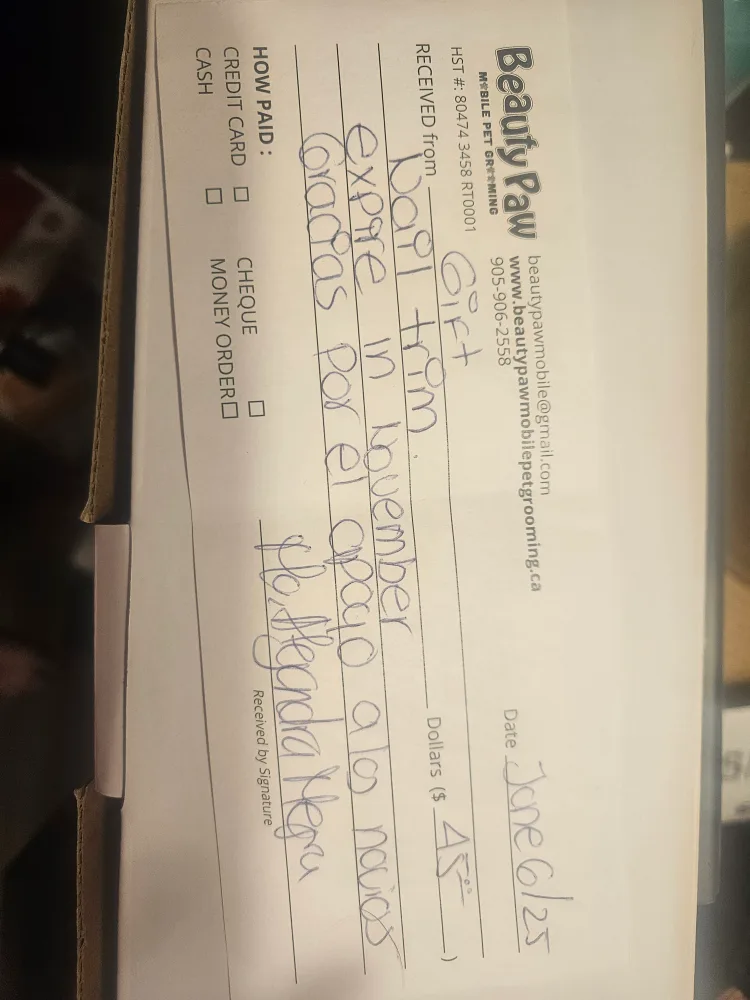 Beauty Paw
MOBILE PET GROOMING
HST #: 80474 3458 RT0001
beautypawmobile@gmail.com
www.beautypawmobilepetgrooming.ca
905-906-2558
Date June 6/25
RECEIVED from Gift
Dollars ($ 45.00 )
Nail trim.
expire in November
Gracias por el apoyo a los novios
HOW PAID :
CREDIT CARD ☐ CHEQUE ☐
CASH ☐ MONEY ORDER ☐
Alejandra
Received by Signature